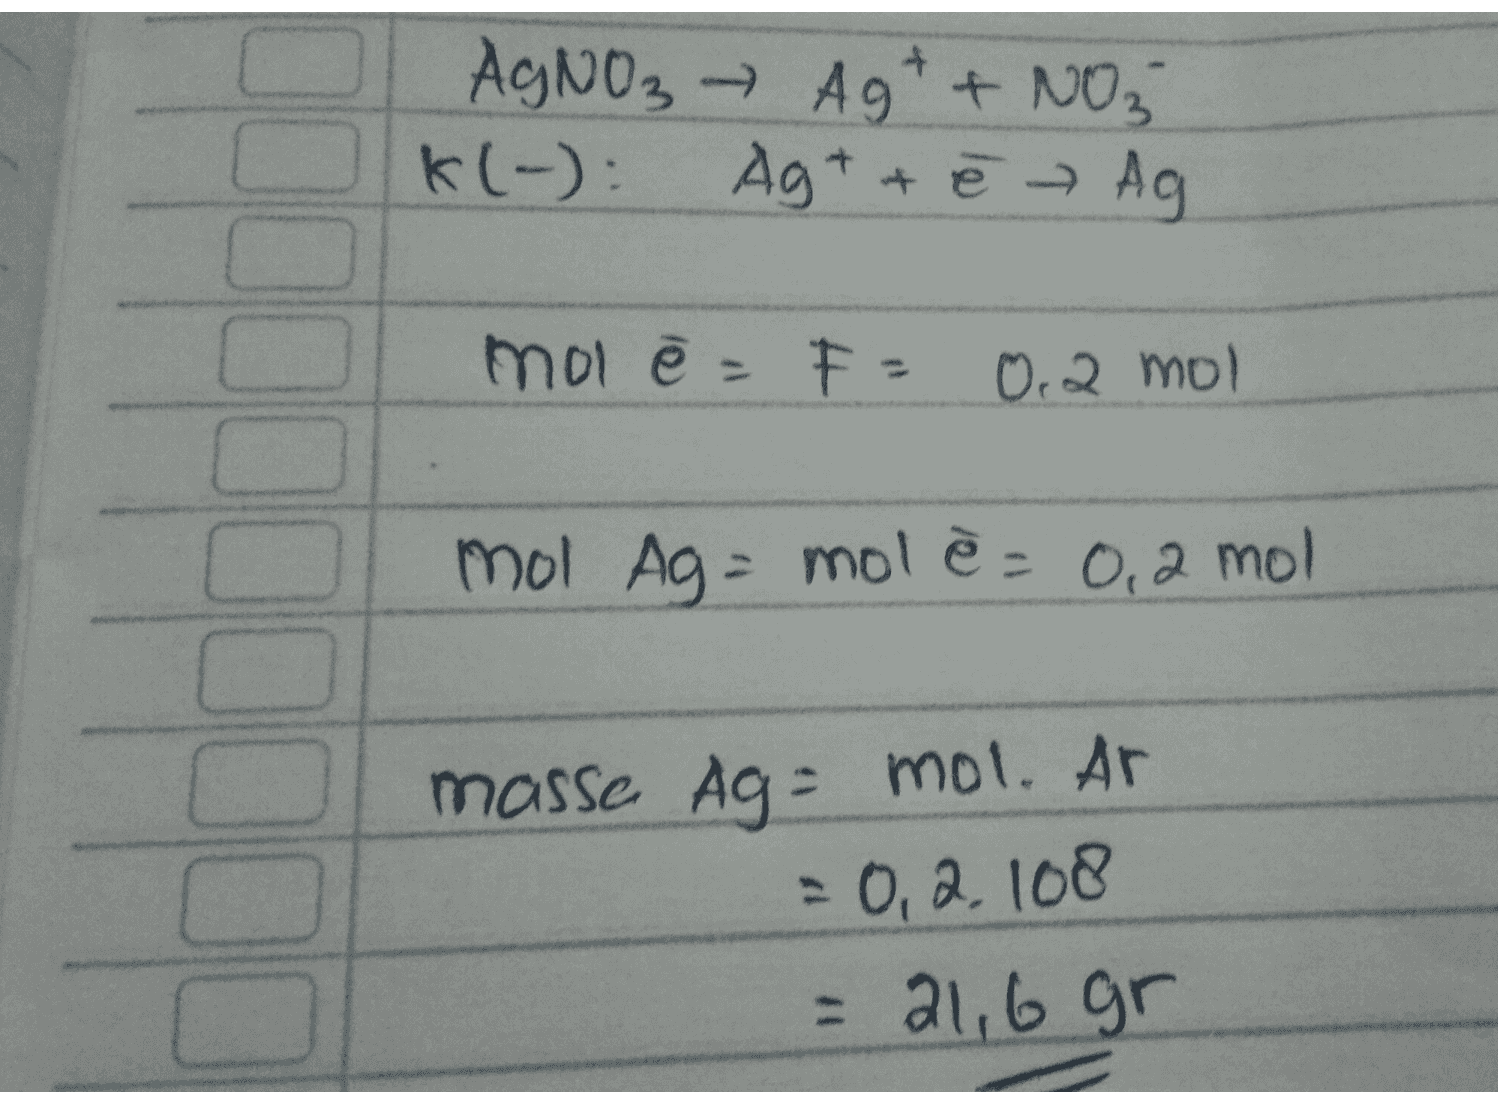 AgNO₃ → Ag⁺ + NO₃⁻
K(-): Ag⁺ + ē → Ag
mol ē = F = 0,2 mol
mol Ag = mol ē = 0,2 mol
massa Ag = mol. Ar
= 0,2. 108
= 21,6 gr